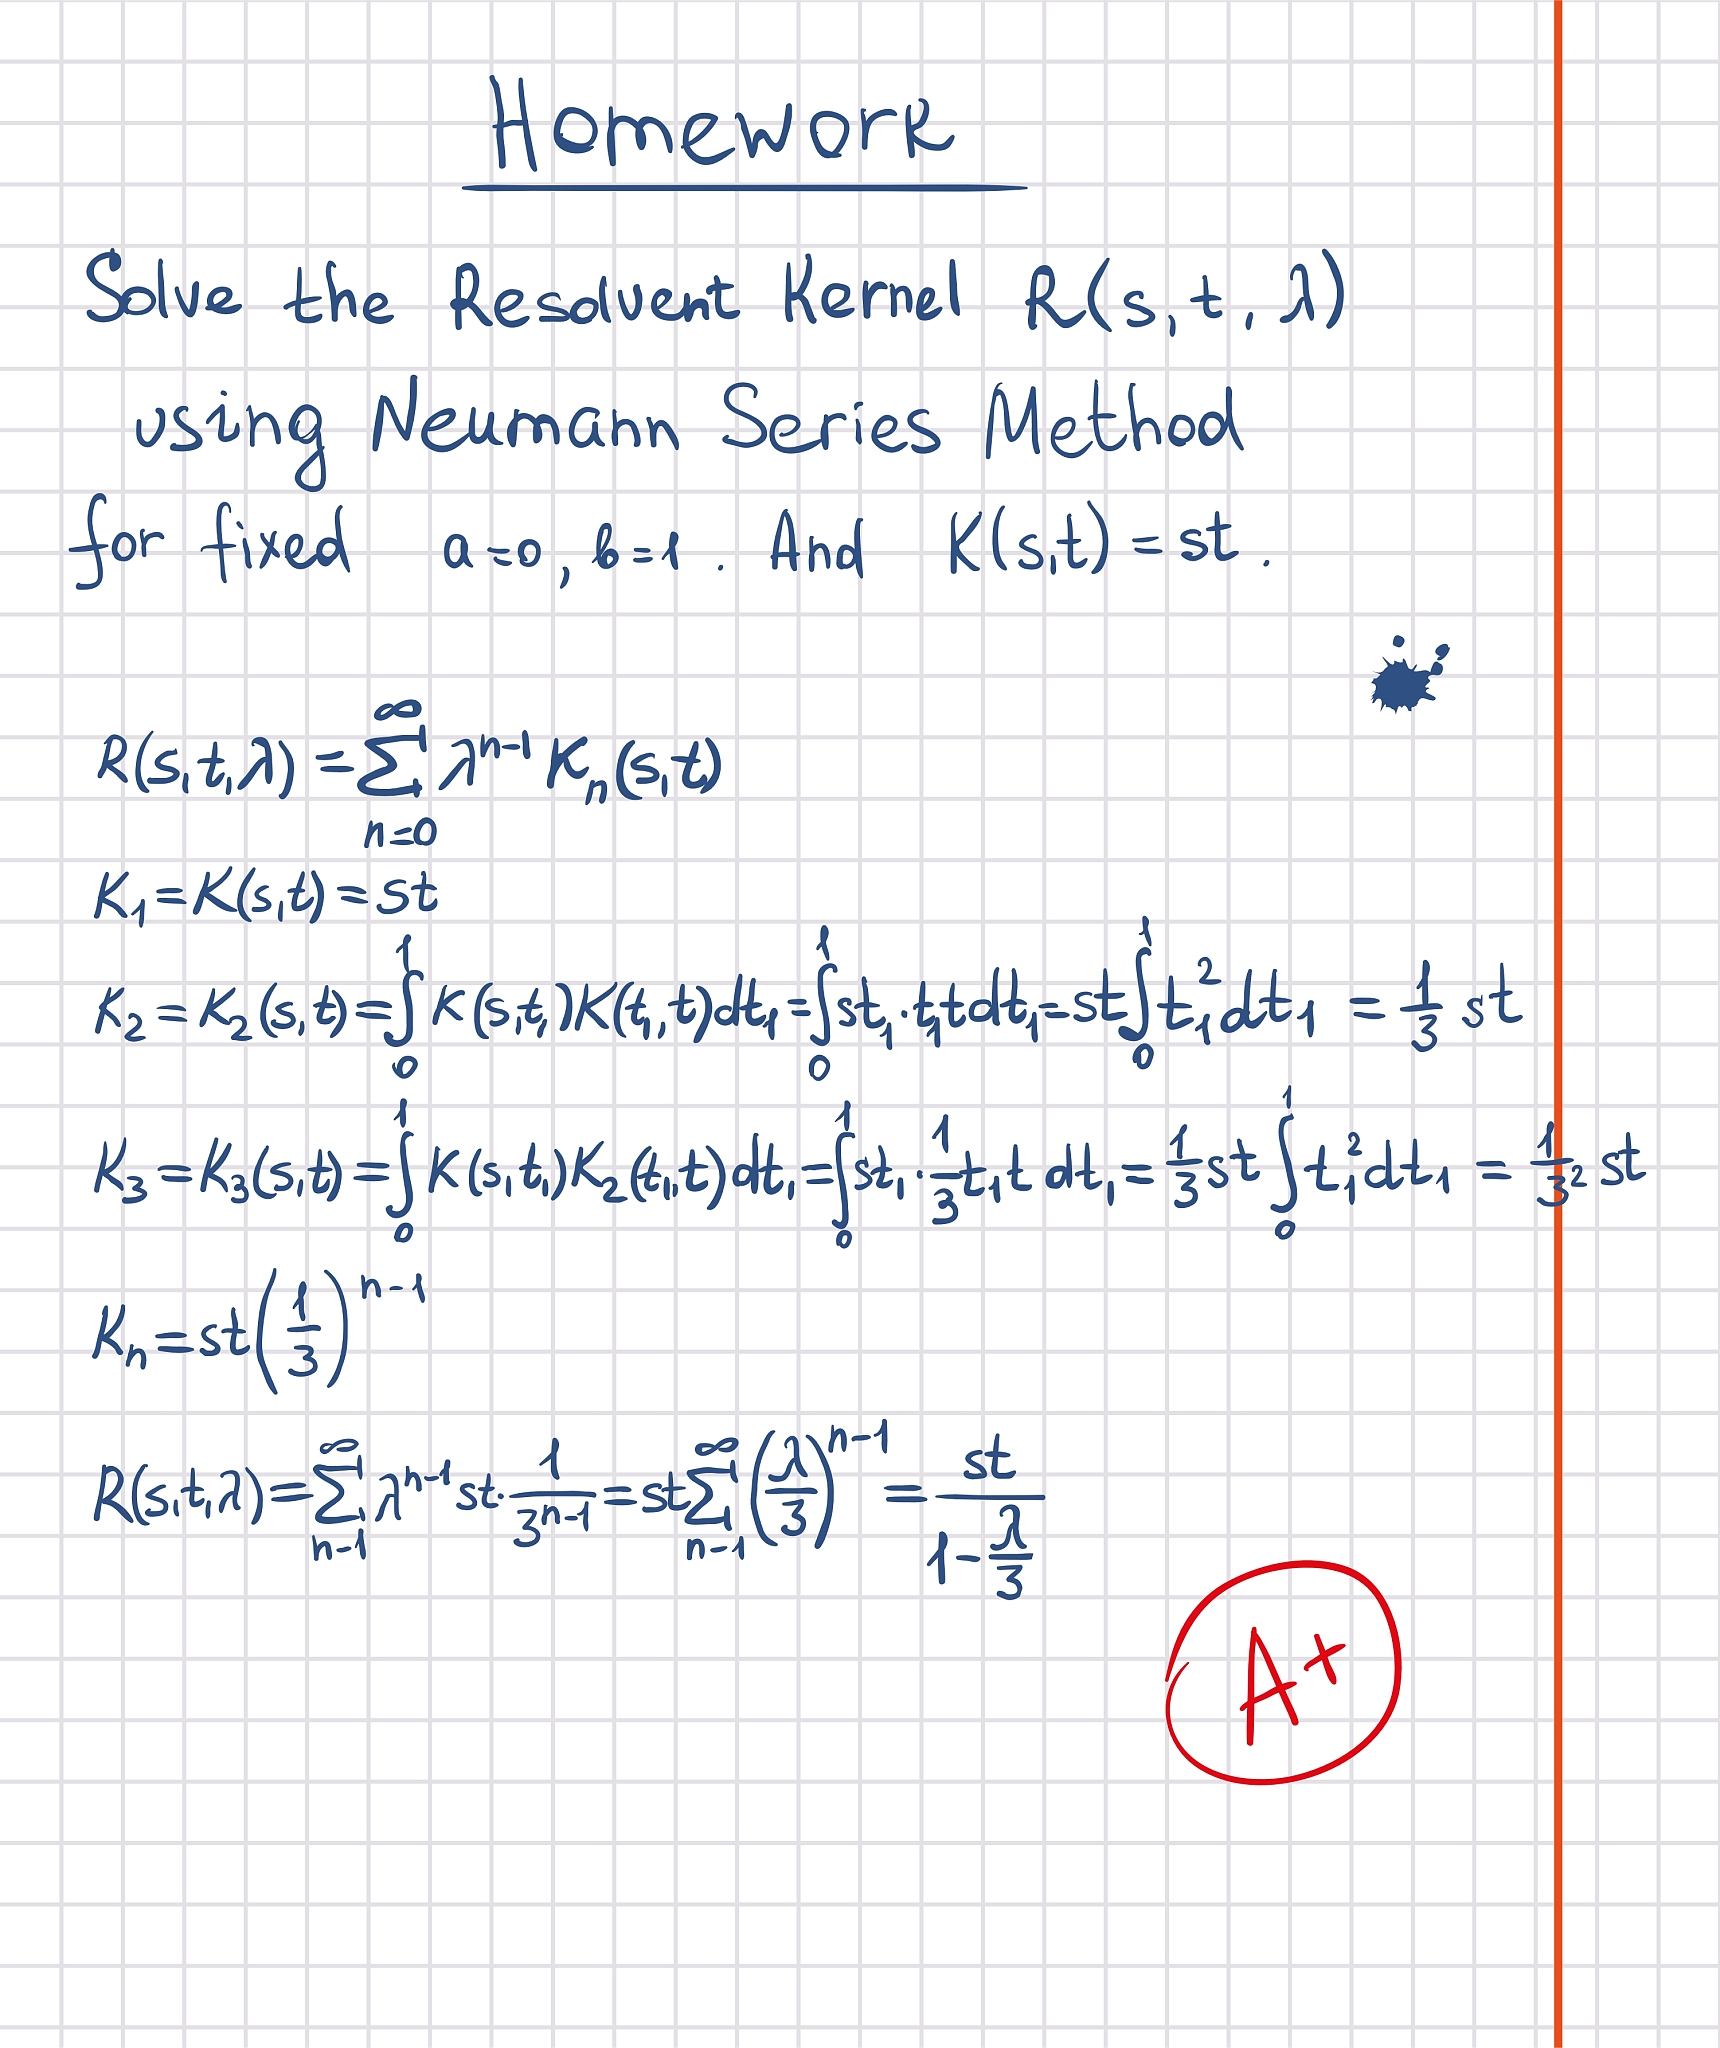 Homework
Solve the Resolvent Kernel R(s,t,λ)
using Neumann Series Method
for fixed a=0, b=1. And K(s,t)=st.
R(s,t,λ) = ∑_{n=0}^{∞} λ^{n-1} K_n(s,t)
K_1=K(s,t)=st
K_2=K_2(s,t)=∫_0^1 K(s,t_1)K(t_1,t)dt_1=∫_0^1 st_1·t_1tdt_1=st∫_0^1 t_1^2dt_1 = 1/3 st
K_3=K_3(s,t)=∫_0^1 K(s,t_1)K_2(t_1,t)dt_1=∫_0^1 st_1·1/3 t_1t dt_1=1/3 st ∫_0^1 t_1^2dt_1 = 1/3^2 st
K_n=st(1/3)^{n-1}
R(s,t,λ)=∑_{n-1}^{∞} λ^{n-1}st·1/3^{n-1}=st∑_{n-1}^{∞}(λ/3)^{n-1}=st/(1-λ/3)
A+